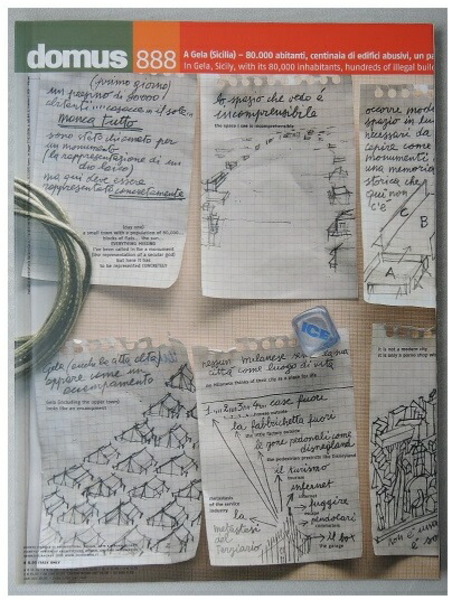 domus 888
A Gela (Sicilia) – 80.000 abitanti, centinaia di edifici abusivi, un pa
In Gela, Sicily, with its 80,000 inhabitants, hundreds of illegal build
(primo giorno)
un paesino di 80000
abitanti..... casacce... il sole...
manca tutto
sono stato chiamato per
un monumento
(la rappresentazione di un
dio laico)
ma qui deve essere
rappresentato concretamente
a small town with a population of 80,000...
EVERYTHING MISSING
I've been called in for a monument
(the representation of a secular god)
but here it has
to be represented CONCRETELY
lo spazio che vedo è
incomprensibile
the space I see is incomprehensible
occorre
spazio in
necessari da
capire come
monumenti
una memoria
storica che
qui non
c'è
C
B
A
ICE
gela (anche la città alta)
appare come un
accampamento
Gela (including the upper town)
looks like an encampment
nessun milanese
città come luogo di vita
no Milanese thinks of their city as a place for life
1...2...3...4... case fuori
houses outside
la fabbrichetta fuori
the little factory outside
le zone pedonali come
disneyland
the pedestrian precincts like Disneyland
il turismo
tourism
internet
internet
fuggire
pendolari
commuters
il box
the garage
metastasis
of the
service
industry
la
metastasi
del
terziario
it is not a modern city
it is only a
non è una
è so